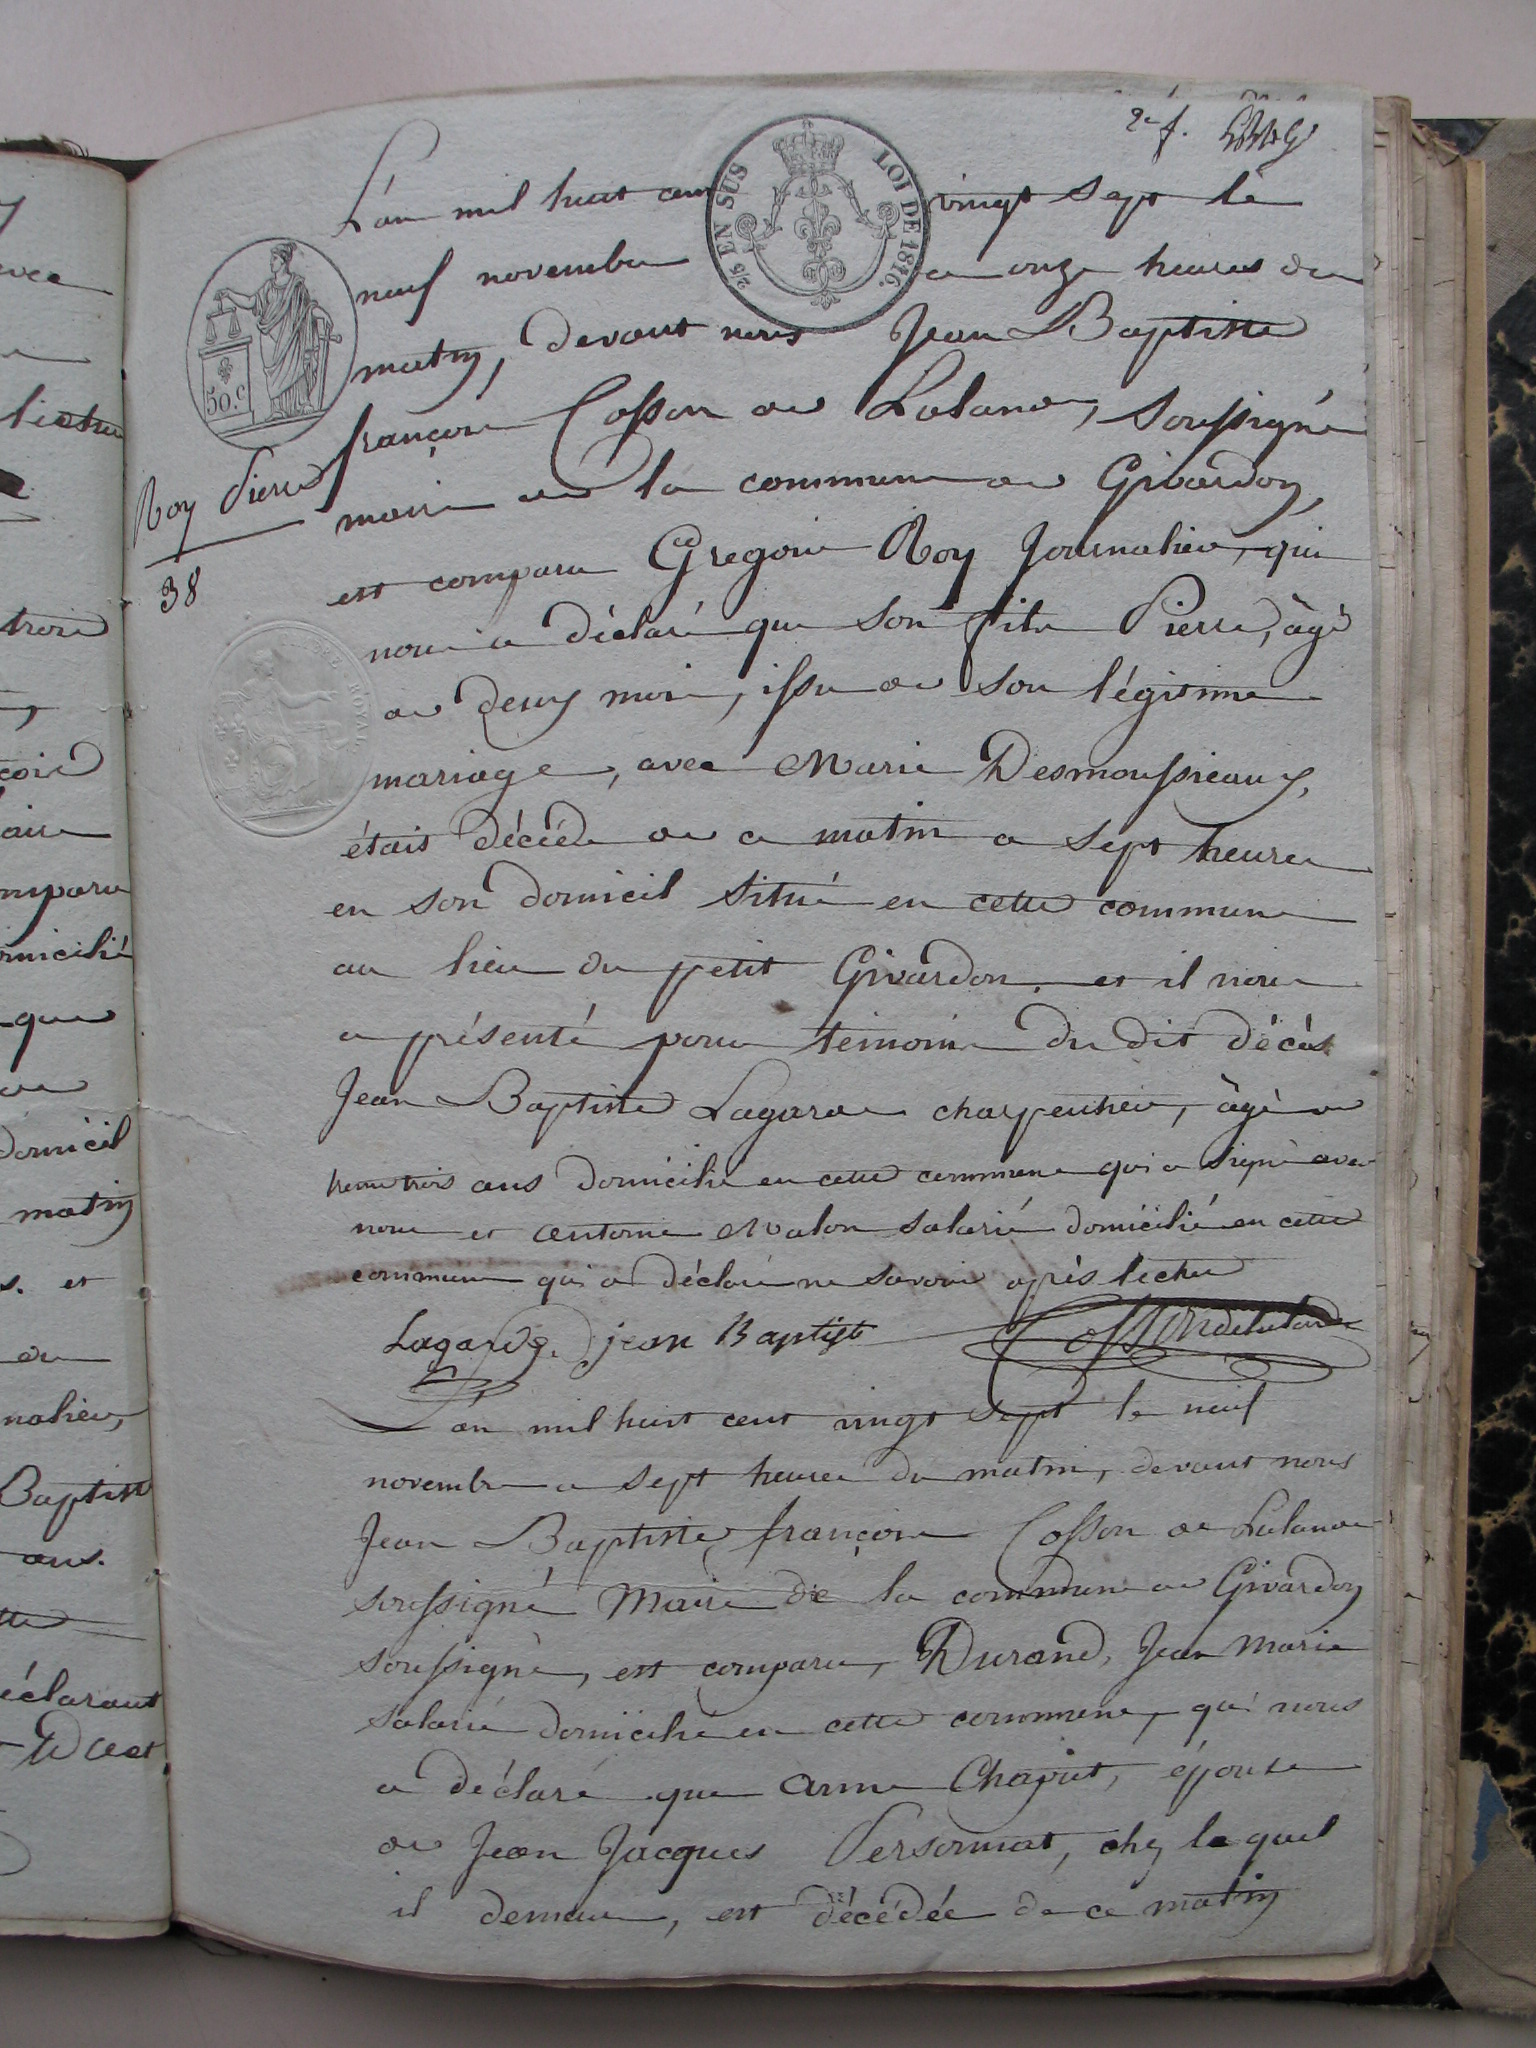 2e f.
L'an mil huit cent vingt sept le
neuf novembre a onze heures du
matin, devant nous Jean Baptiste
françois Cosson de Lalande, soussigné
maire de la commune de Givardon,
est comparu Gregoire Roy Journalier, qui
nous a déclaré que son fils Pierre, âgé
de deux mois, issu de son légitime
mariage, avec Marie Desmoussieaux,
étais décédé de ce matin a sept heures
en son domicil situé en cette commune
au lieu du petit Givardon. et il nous
a présenté pour témoins du dit décès
Jean Baptiste Lagarde charpentier, âgé de
trente trois ans domicilié en cette commune qui a signé avec
nous et antoine Avalon salarié domicilié en cette
commune qui a déclaré ne savoir après lecture
Lagarde jean Baptiste Cosson delalande
Roy Pierre
38
50.c
2/5 EN SUS LOI DE 1816.
TIMBRE ROYAL
L'an mil huit cent vingt sept le neuf
novembre a sept heures du matin, devant nous
Jean Baptiste, françois Cosson de Lalande
soussigné Maire de la commune de Givardon
soussigné, est comparu, Durand, Jean Marie
salarié domicilié en cette commune, qui nous
a déclaré que anne Chaput, épouse
de Jean Jacques Personnat, chez lequel
il demeure, est décédée de ce matin
ece
lecture
trois
çois
aire
omparu
omicilié
que
de
domicil
matin
s. et
du
nalier,
Baptiste
ans.
tte
éclarant